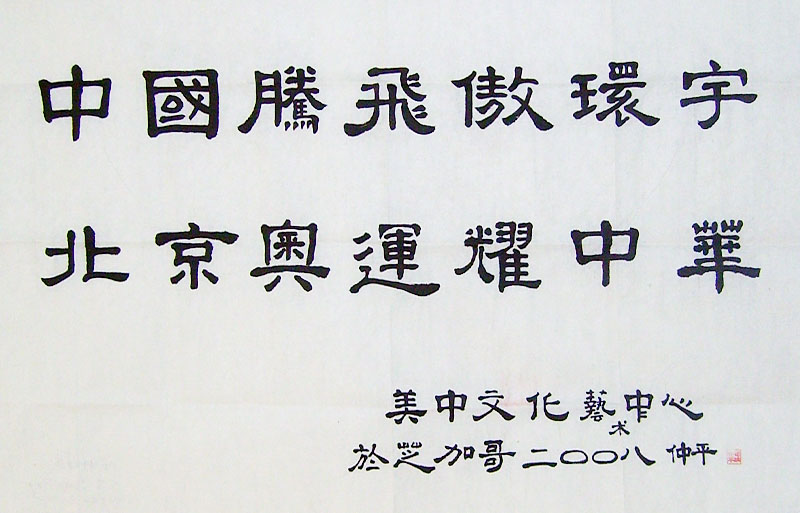 中國騰飛傲環宇
北京奧運耀中華
美中文化藝术中心
於芝加哥二〇〇八仲平